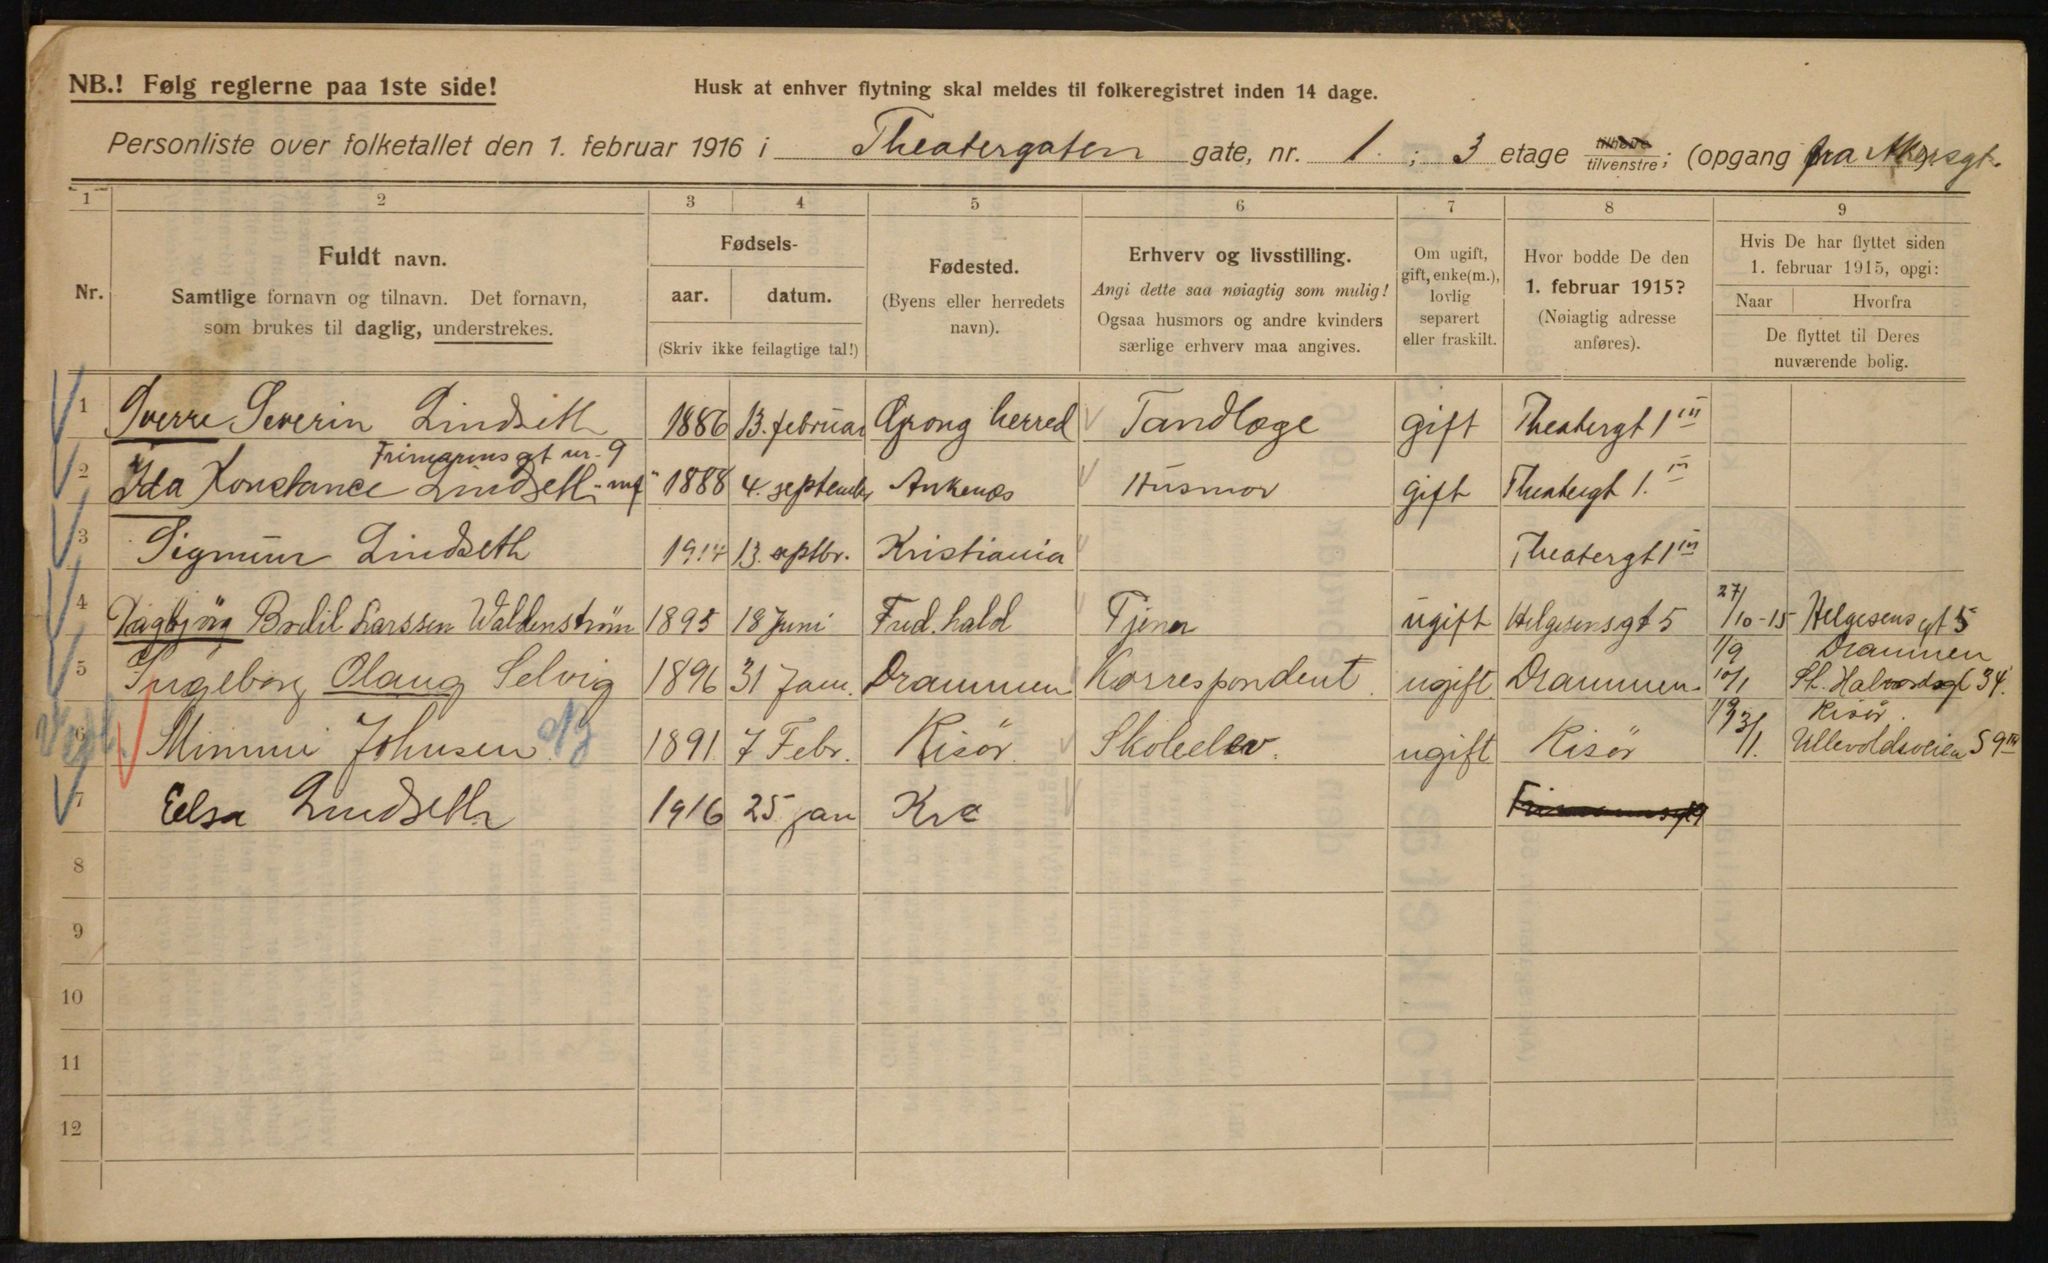 NB.! Følg reglerne paa 1ste side!
Husk at enhver flytning skal meldes til folkeregistret inden 14 dage.
Personliste over folketallet den 1. februar 1916 i Theatergaten gate, nr. 1. ; 3 etage tilhøire/tilvenstre; (opgang fra Akersgt.
1 2 3 4 5 6 7 8 9
Nr.
Fuldt navn.
Samtlige fornavn og tilnavn. Det fornavn,
som brukes til daglig, understrekes.
Fødsels-
aar. datum.
(Skriv ikke feilagtige tal!)
Fødested.
(Byens eller herredets
navn).
Erhverv og livsstilling.
Angi dette saa nøiagtig som mulig!
Ogsaa husmors og andre kvinders
særlige erhverv maa angives.
Om ugift,
gift, enke(m.),
lovlig
separert
eller fraskilt.
Hvor bodde De den
1. februar 1915?
(Nøiagtig adresse
anføres).
Hvis De har flyttet siden
1. februar 1915, opgi:
Naar Hvorfra
De flyttet til Deres
nuværende bolig.
1 Sverre Severin Lindseth 1886 13. februar Grong herred Tandlæge gift Theatergt 1 III
Frimanns gt nr. 9
2 Ida Konstance Lindseth 1888 4. september Ankenæs Husmor gift Theatergt 1. III
3 Sigmun Lindseth 1914 13. septbr. Kristiania Theatergt 1 III
4 Dagbjörg Bodil Larssen Waldenström 1895 18 Juni Fred.hald Tjener ugift Helgesensgt 5 27/10-15 Helgesens gt 5
1/9 Drammen
5 Ingeborg Olaug Selvig 1896 31 Jan. Drammen Korrespondent ugift Drammen 10/1 St. Halvardsgt 34.
Risør
6 Mimmi Johnsen 1891. 7 Febr. Risør. Skoleelev ugift Risør 3/1. Ullevoldsveien 59 III
7 Elsa Lindseth 1916 25 jan Kra Frimannsgt 9
8
9
10
11
12